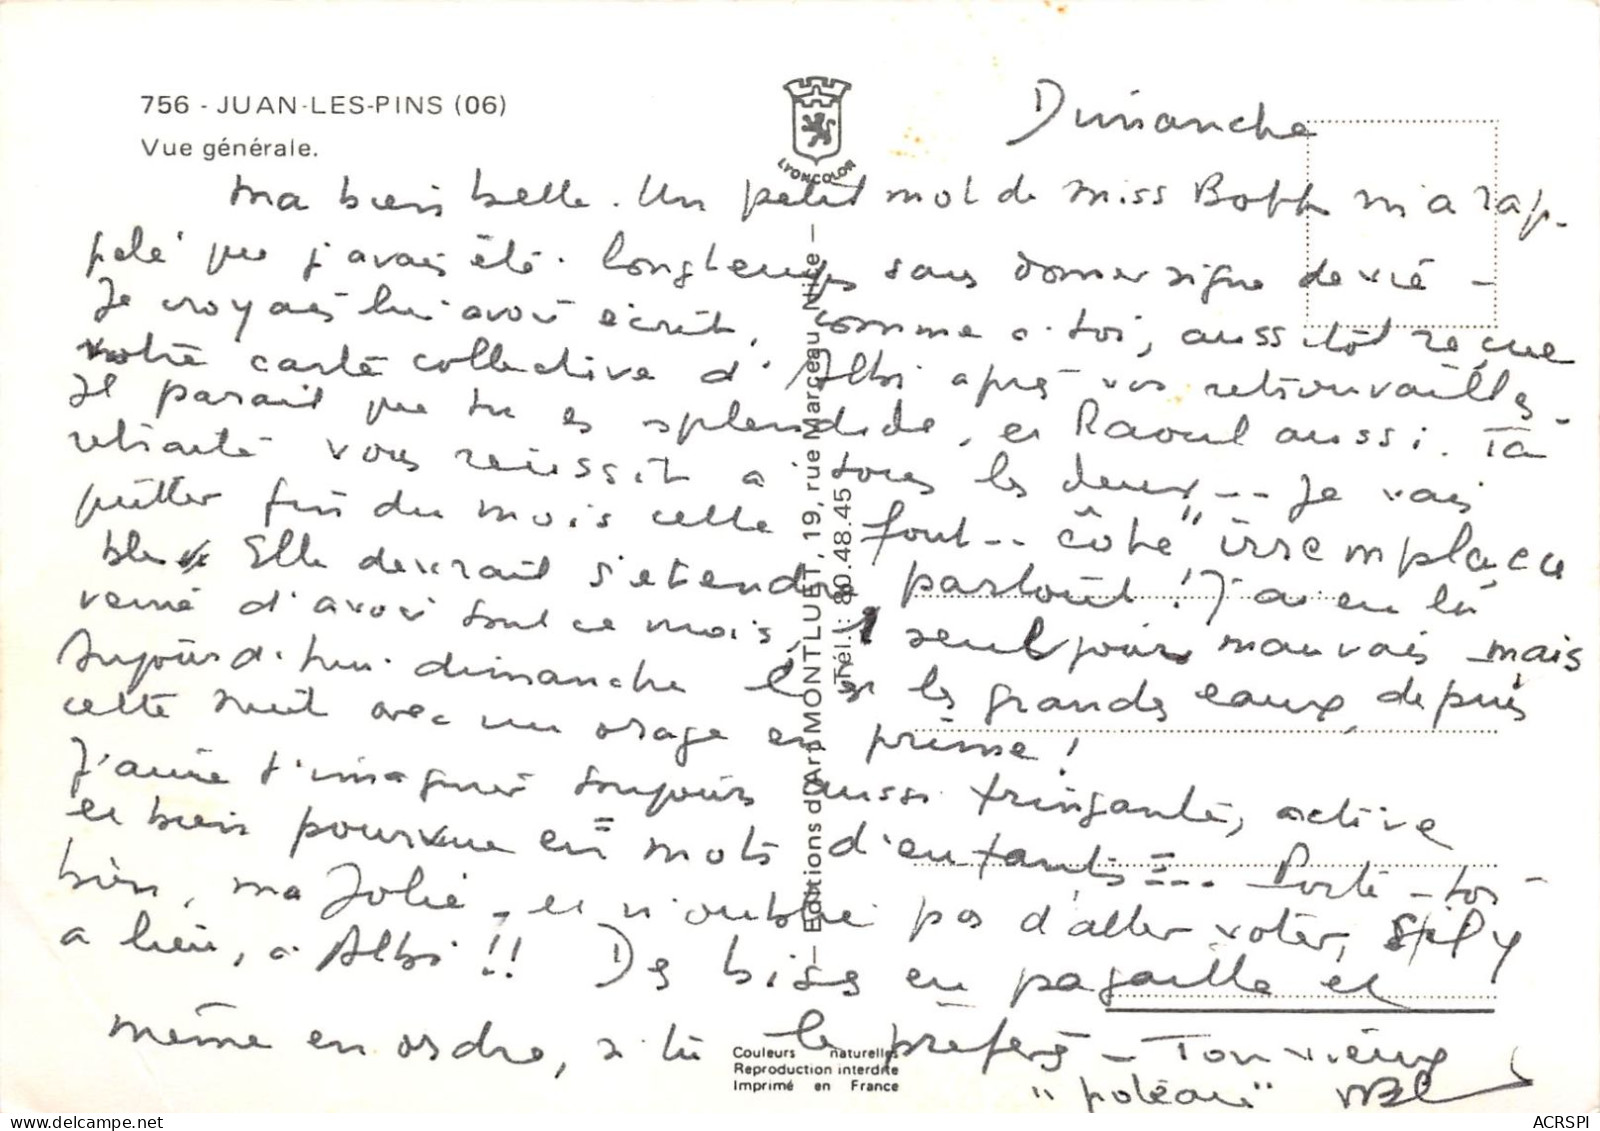 756 - JUAN-LES-PINS (06)
Vue générale.
LYONCOLOR
Dimanche
Ma bien belle. Un petit mot de Miss Boff m'a rap-
pelé que j'avais été longtemps sans donner signe de vie -
Je croyais lui avoir écrit, comme à toi, aussitôt reçue
votre carte collective d'Albi après vos retrouvailles -
Il paraît que tu es splendide, et Raoul aussi. Ta
retraite vous réussit à tous les deux -- Je vais
quitter fin du mois cette font.. côte "irremplaça
ble. Elle devrait s'étendre partout ! J'ai eu la
veine d'avoir tout ce mois, 1 seul jour mauvais mais
Aujourd'hui dimanche c'est les grandes eaux, depuis
cette nuit avec un orage en prime !
J'aime t'imaginer toujours aussi fringante, active
et bien pourvue en = mots d'enfants = -.. Porte-toi
bien, ma Jolie, et n'oublie pas d'aller voter, s'il y
a lieu, à Albi !! Des bises en pagaille et
même en ordre, si tu le préfères - Ton vieux
"poteau"
— Editions d'Art MONTLUET, 19, rue Marceau Nice —
Tél. : 80.48.45
Couleurs naturelles
Reproduction interdite
Imprimé en France
ACRSPI